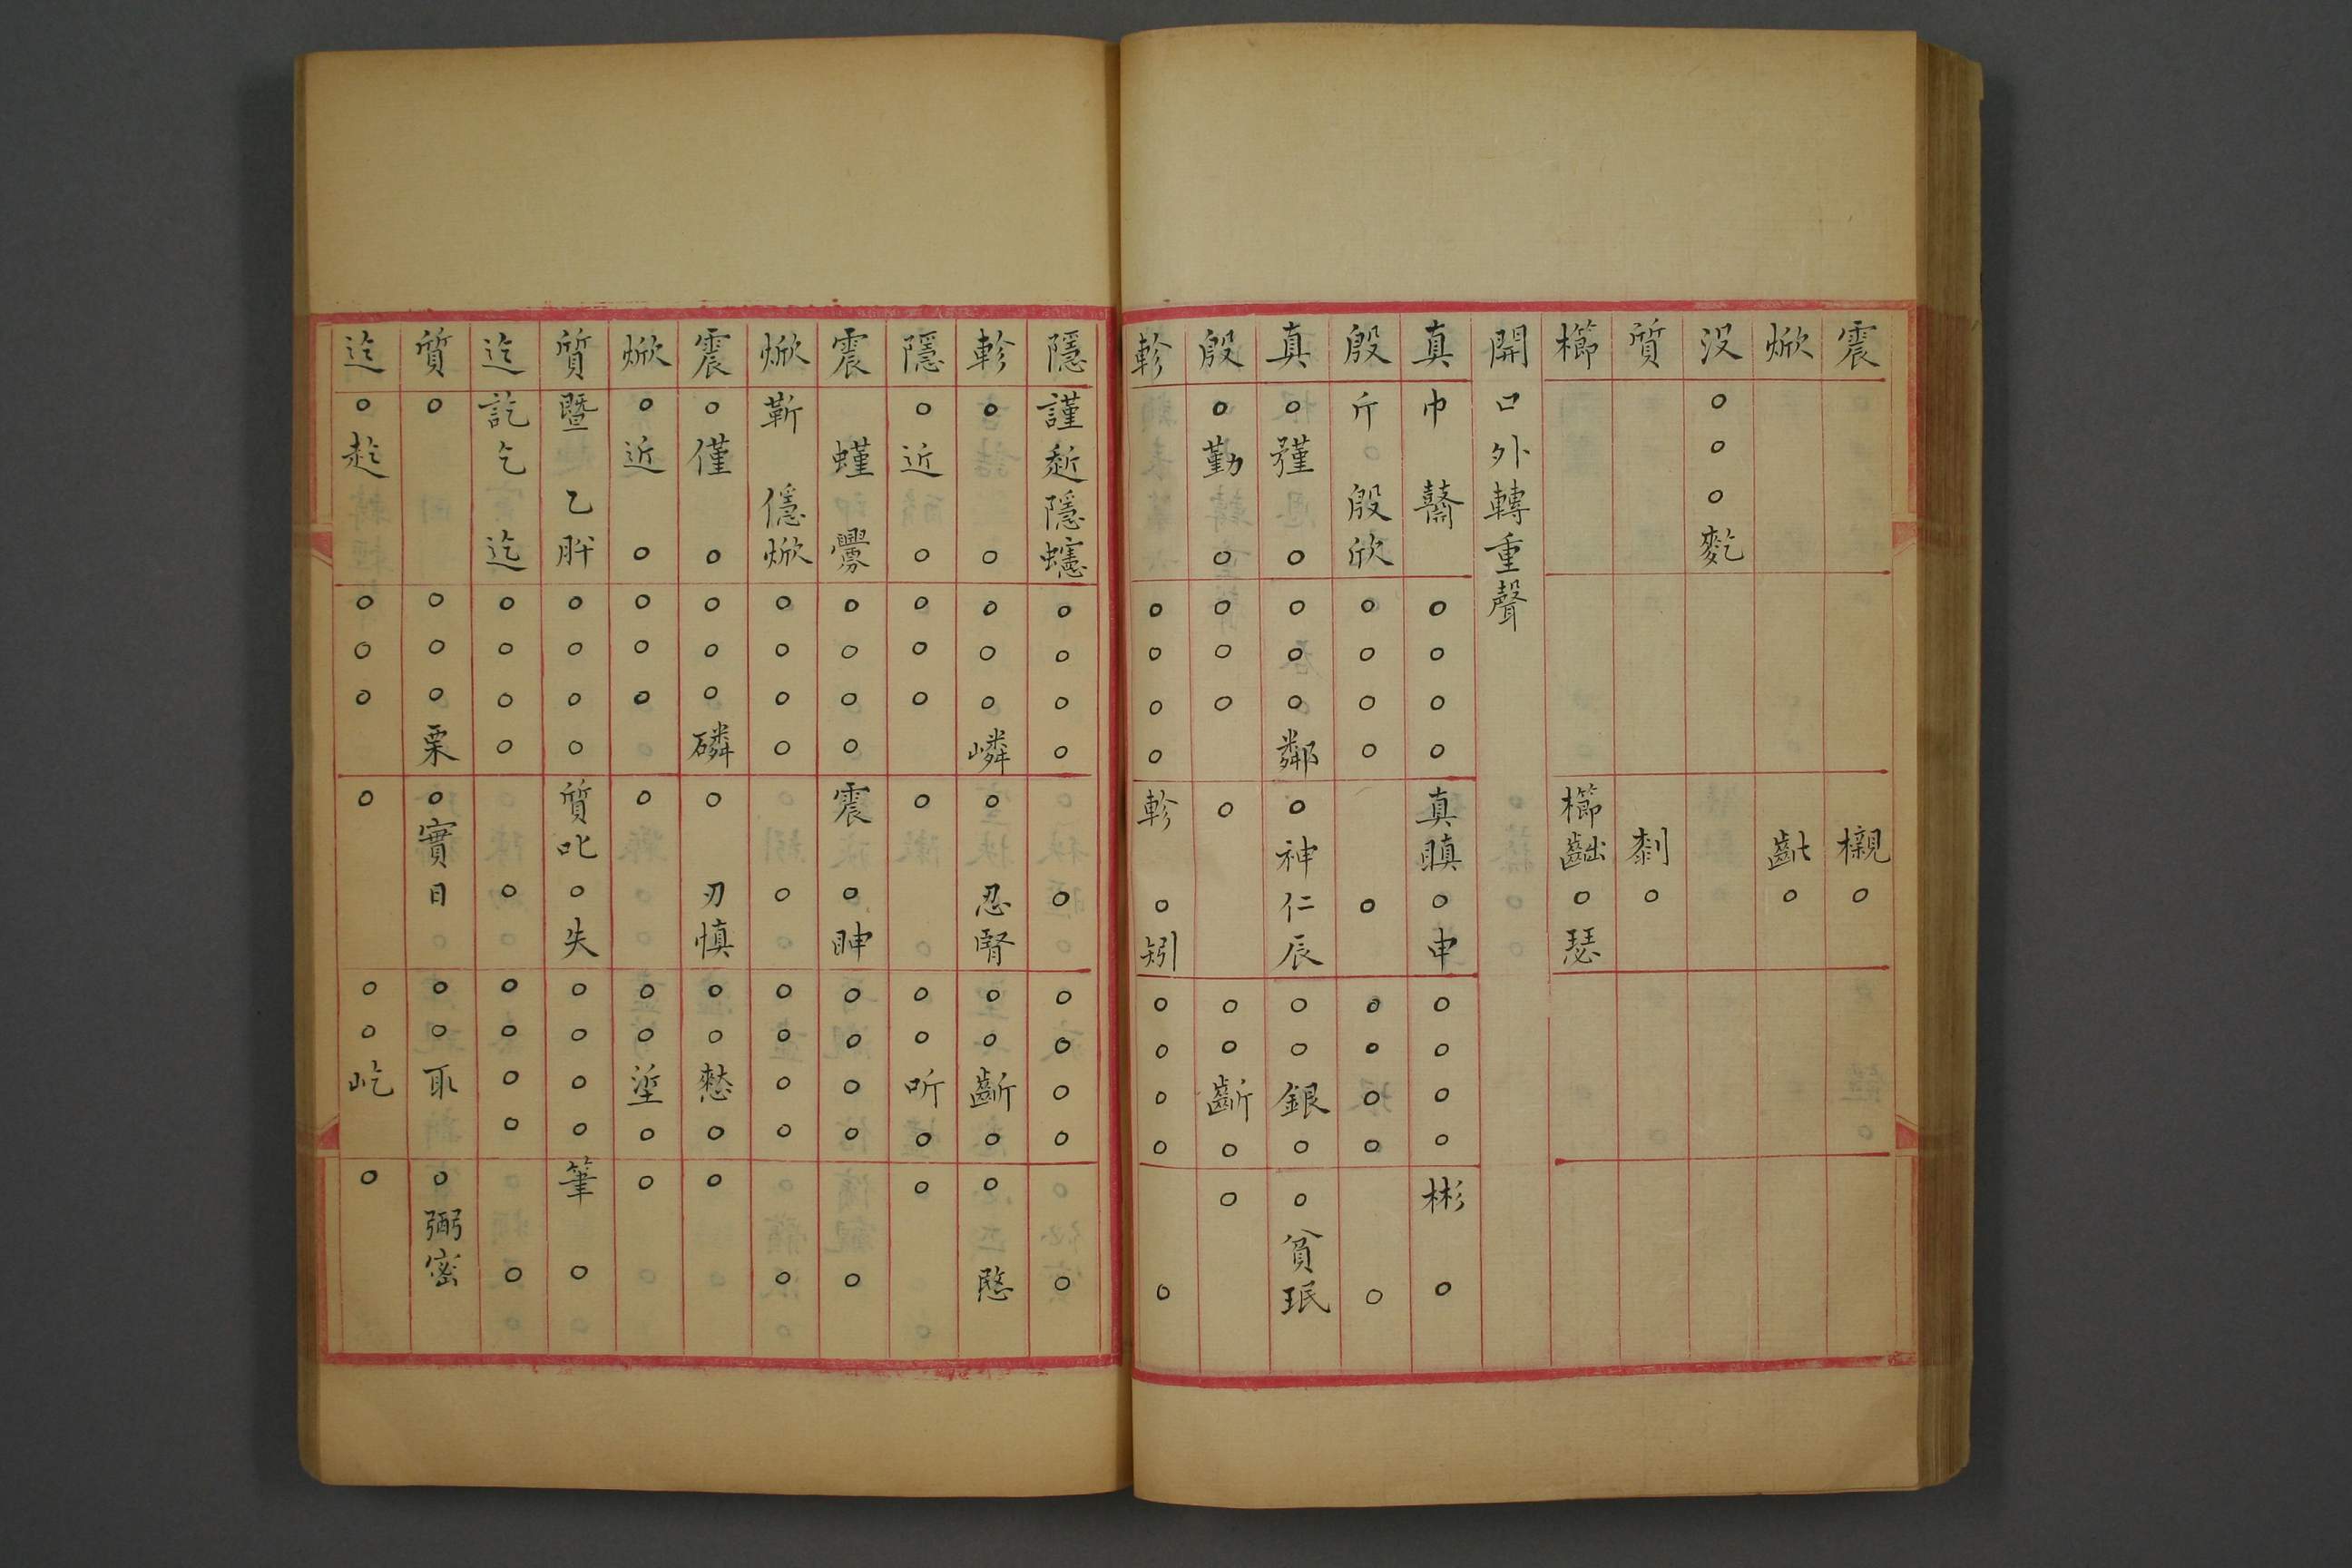 震櫬○
焮齔○
没○○○麧
質刹○
櫛櫛齜○瑟
開口外轉重聲
真巾䰠○○○○真瞋○申○○○○彬○
殷斤殷欣○○○○○○○○○○
真○㹏○○○○鄰○神仁辰○○銀○○貧珉
殷○勤○○○○○○○齗○○
軫○○○○軫○矧○○○○○
隱謹赾隱𧒎○○○○○○○○○○
軫○○○○○嶙○忍腎○○齗○○愍
隱○近○○○○○○○听○○
震螼釁○○○○震○眒○○○○○
焮靳㒚焮○○○○○○○○○○
震○僅○○○○磷○刃慎○○憖○○
焮○近○○○○○○○垽○○
質暨乙肸○○○○質叱○失○○○○筆○
迄訖乞迄○○○○○○○○○○
質○○○○栗○實日○○耴○弼密
迄○趌○○○○○○屹○